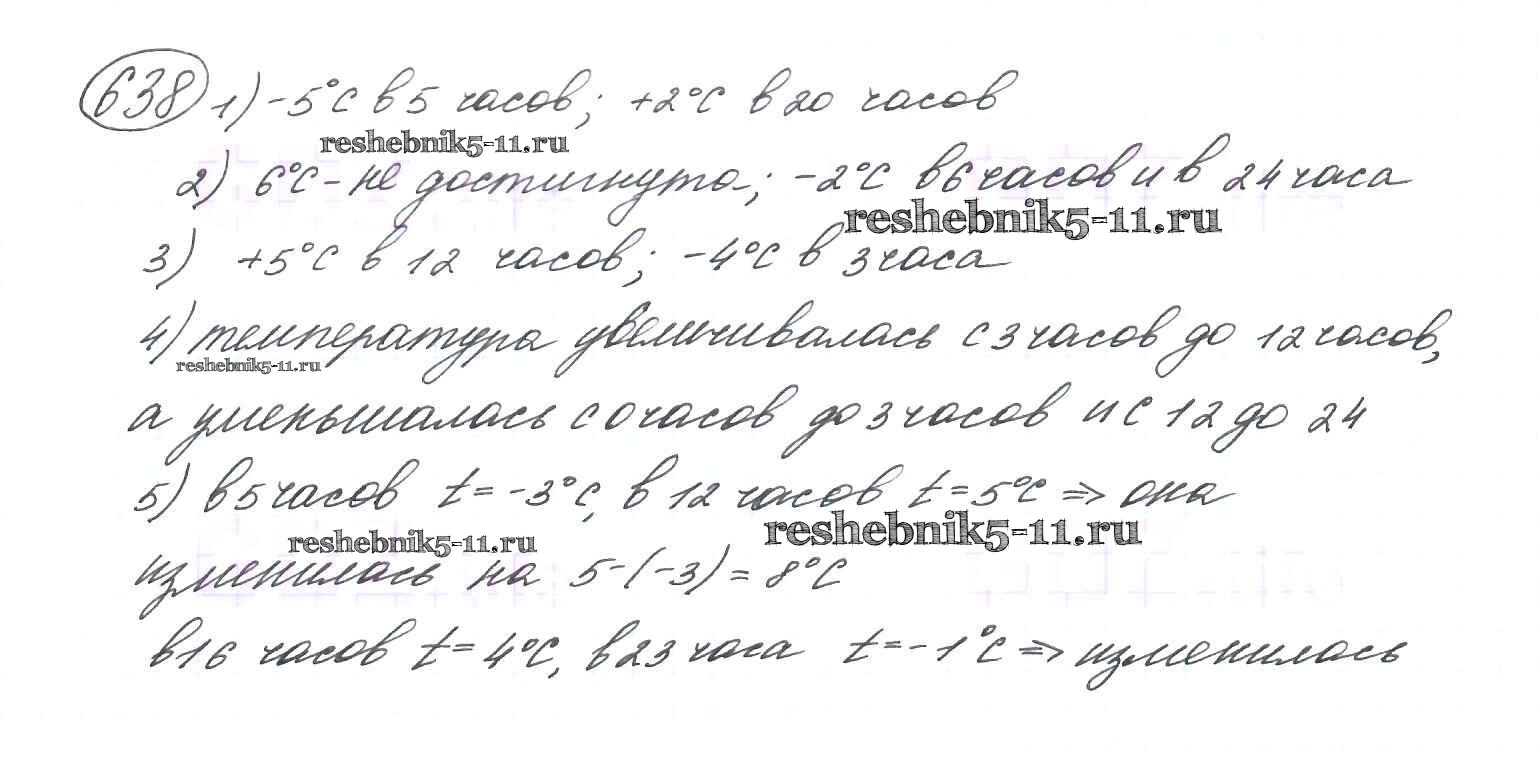 638 1) -5°C в 5 часов; +2°C в 20 часов
reshebnik5-11.ru
2) 6°C - не достигнуто; -2°C в 6 часов и в 24 часа
reshebnik5-11.ru
3) +5°C в 12 часов; -4°C в 3 часа
4) температура увеличивалась с 3 часов до 12 часов,
reshebnik5-11.ru
а уменьшалась с 0 часов до 3 часов и с 12 до 24
5) в 5 часов t = -3°C, в 12 часов t = 5°C => она
reshebnik5-11.ru
reshebnik5-11.ru
изменилась на 5-(-3) = 8°C
в 16 часов t = 4°C, в 23 часа t = -1°C => изменилась